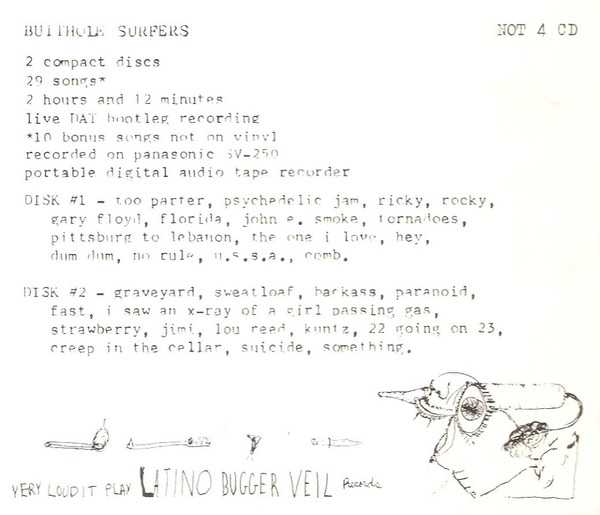 BUTTHOLE SURFERS NOT 4 CD
2 compact discs
29 songs*
2 hours and 12 minutes
live DAT bootleg recording
*10 bonus songs not on vinyl
recorded on panasonic SV-250
portable digital audio tape recorder
DISK #1 - too parter, psychedelic jam, ricky, rocky,
gary floyd, florida, john e. smoke, tornadoes,
pittsburg to lebanon, the one i love, hey,
dum dum, no rule, u.s.s.a., comb.
DISK #2 - graveyard, sweatloaf, backass, paranoid,
fast, i saw an x-ray of a girl passing gas,
strawberry, jimi, lou reed, kuntz, 22 going on 23,
creep in the cellar, suicide, something.
VERY LOUD IT PLAY LATINO BUGGER VEIL Records